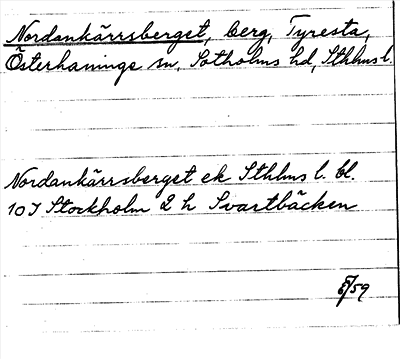 Nordankärrsberget, berg, Tyresta,
Österhaninge sn, Sotholms hd, Sthlms l.
Nordankärrsberget ek Sthlms l. bl.
10 I Stockholm 2 h Svartbäcken
/59